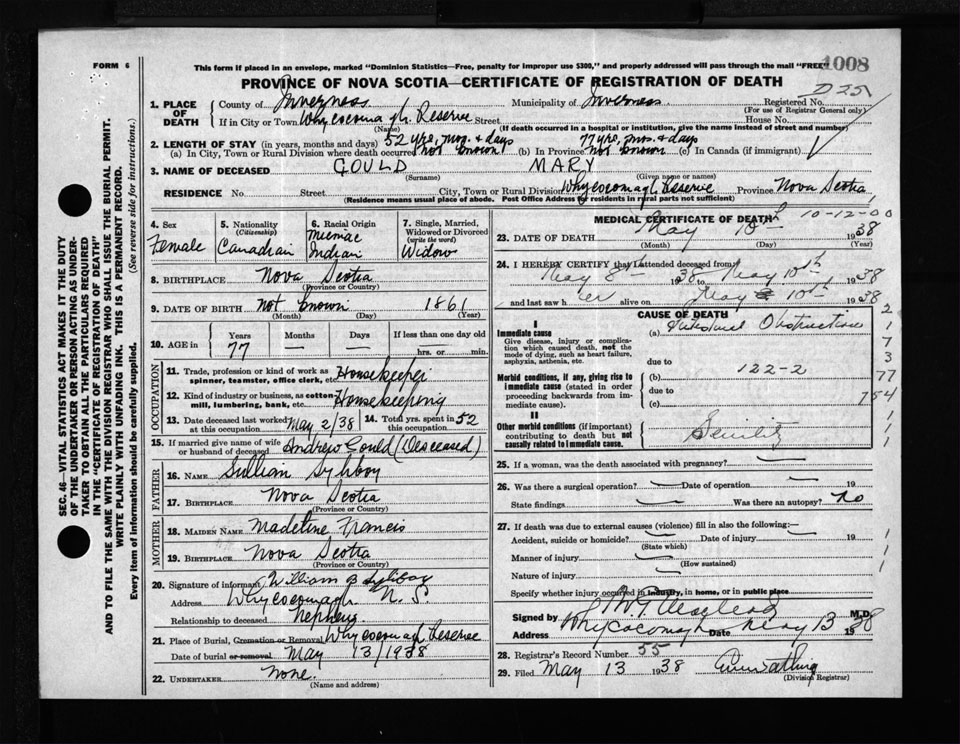 FORM 6
This form if placed in an envelope, marked "Dominion Statistics—Free, penalty for improper use $300," and properly addressed will pass through the mail "FREE"
1008
PROVINCE OF NOVA SCOTIA—CERTIFICATE OF REGISTRATION OF DEATH
D 25
1. PLACE OF DEATH
County of Inverness Municipality of Inverness Registered No.
(For use of Registrar General only)
If in City or Town Whycocomagh Reserve Street House No.
(Name) (If death occurred in a hospital or institution, give the name instead of street and number)
2. LENGTH OF STAY (in years, months and days) 52 yrs, mos. & days 77 yrs, mos. & days
(a) In City, Town or Rural Division where death occurred not known (b) In Province Not known (c) In Canada (if immigrant)
3. NAME OF DECEASED GOULD MARY
(Surname) (Given name or names)
RESIDENCE No Street City, Town or Rural Division Whycocomagh Reserve Province Nova Scotia
(Residence means usual place of abode. Post Office Address for residents in rural parts not sufficient)
4. Sex Female
5. Nationality (Citizenship) Canadian
6. Racial Origin Micmac Indian
7. Single, Married, Widowed or Divorced (write the word) Widow
8. BIRTHPLACE Nova Scotia
(Province or Country)
9. DATE OF BIRTH Not known 1861
(Month) (Day) (Year)
10. AGE IN Years 77 Months — Days — If less than one day old
hrs. or min.
OCCUPATION
11. Trade, profession or kind of work as spinner, teamster, office clerk, etc. Housekeeper
12. Kind of industry or business, as cotton-mill, lumbering, bank, etc. Housekeeping
13. Date deceased last worked at this occupation May 2/38
14. Total yrs. spent in this occupation 52
15. If married give name of wife or husband of deceased Andrew Gould (Deceased)
FATHER
16. NAME Sylliboy
17. BIRTHPLACE Nova Scotia
(Province or Country)
MOTHER
18. MAIDEN NAME Madeline Francis
19. BIRTHPLACE Nova Scotia
(Province or Country)
20. Signature of informant William B Sylliboy
Address Whycocomagh N. S.
Relationship to deceased Nephew
21. Place of Burial, Cremation or Removal Whycocomagh Reserve
Date of burial or removal May 13/1938
22. UNDERTAKER None.
(Name and address)
MEDICAL CERTIFICATE OF DEATH
10-12-00
23. DATE OF DEATH May 10th 1938
(Month) (Day) (Year)
24. I HEREBY CERTIFY that I attended deceased from
May 8th 1938 to May 10th 1938
and last saw her alive on May 10th 1938
CAUSE OF DEATH
I
Immediate cause
Give disease, injury or complication which caused death, not the mode of dying, such as heart failure, asphyxia, asthenia, etc.
(a) Intestinal Obstruction
due to
Morbid conditions, if any, giving rise to immediate cause (stated in order proceeding backwards from immediate cause).
(b) 122-2
due to
(c)
II
Other morbid conditions (if important) contributing to death but not causally related to immediate cause.
Senility
2
1
7
3
77
754
1
1
25. If a woman, was the death associated with pregnancy? —
26. Was there a surgical operation? — Date of operation — 19
State findings — Was there an autopsy? no
27. If death was due to external causes (violence) fill in also the following:—
Accident, suicide or homicide? — Date of injury — 19
(State which)
Manner of injury
(How sustained)
Nature of injury
Specify whether injury occurred in industry, in home, or in public place
Signed by M.D.
Address Whycocomagh Date May 13 1938
28. Registrar's Record Number 55
29. Filed May 13 1938
(Division Registrar)
SEC. 46—VITAL STATISTICS ACT MAKES IT THE DUTY
OF THE UNDERTAKER OR PERSON ACTING AS UNDER-
TAKER TO OBTAIN ALL THE PARTICULARS REQUIRED
IN THE "CERTIFICATE OF REGISTRATION OF DEATH"
AND TO FILE THE SAME WITH THE DIVISION REGISTRAR WHO SHALL ISSUE THE BURIAL PERMIT.
WRITE PLAINLY WITH UNFADING INK. THIS IS A PERMANENT RECORD.
Every item of information should be carefully supplied. (See reverse side for instructions.)